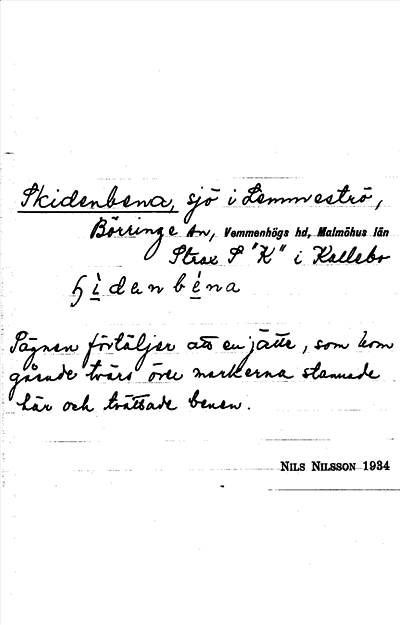 Skidenbena, sjö i Lemmeströ,
Börringe sn, Vemmenhögs hd, Malmöhus län
Strax S "K" i Kallebo
ʃi̱denbe̱na
Sägnen förtäljer att en jätte, som kom
gående tvärs över markerna stannade
här och tvättade benen.
NILS NILSSON 1934